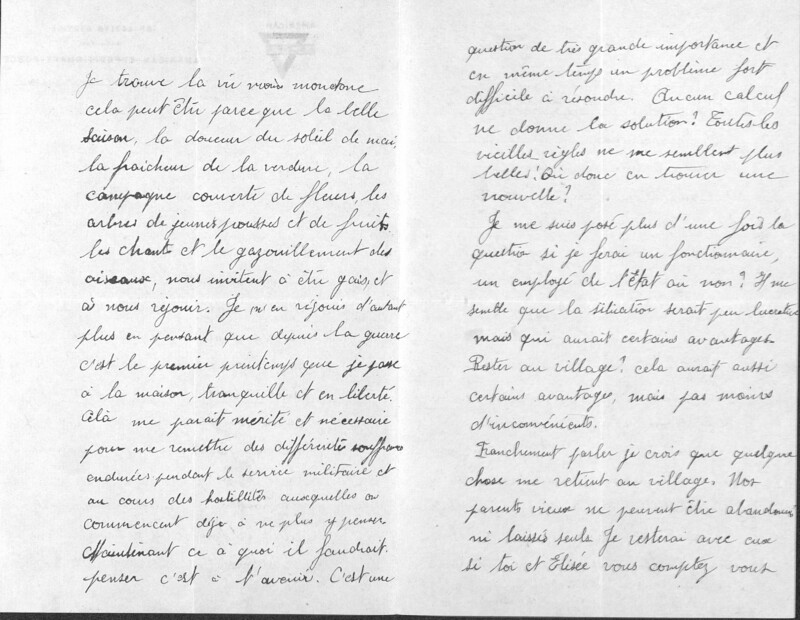 Je trouve la vie moins monotone
cela peut être parce que la belle
saison, la douceur du soleil de mai,
la fraîcheur de la verdure, la
campagne couverte de fleurs, les
arbres de jeunes pousses et de fruits
les chants et le gazouillement des
oiseaux, nous invitent à être gais, et
à nous réjouir. Je m'en réjouis d'autant
plus en pensant que depuis la guerre
c'est le premier printemps que je passe
à la maison, tranquille et en liberté.
Celà me parait mérité et nécessaire
pour me remettre des différentes souffrances
endurées pendant le service militaire et
au cours des hostilités auxquelles on
commencent déjà à ne plus y penser.
Maintenant ce à quoi il faudrait
penser c'est à l'avenir. C'est une
question de très grande importance et
en même temps un problème fort
difficile à résoudre. Aucun calcul
ne donne la solution? Toutes les
vieilles règles ne me semblent plus
belles! Où donc en trouver une
nouvelle?
Je me suis posé plus d'une fois la
question si je ferai un fonctionaire,
un employé de l'État où non? Il me
semble que la situation serait peu lucrative
mais qui aurait certains avantages.
Rester au village? cela aurait aussi
certains avantages, mais pas moins
d'inconvénients.
Franchement parler je crois que quelque
chose me retient au village. Nos
parents vieux ne peuvent être abandonnés
ni laissés seuls. Je resterai avec eux
si toi et Elisée vous comptez vous